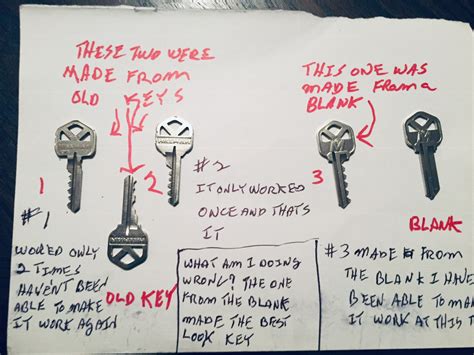 THESE TWO WERE
MADE FROM
OLD KEYS
THIS ONE WAS
MADE FROM a
BLANK
1
2
3
#1
WORED ONLY
2 TIMES
HAVEN'T BEEN
ABLE TO MAKE
IT WORK AGAIN
OLD KEY
#2
IT ONLY WORKED
ONCE AND THATS
IT
WHAT AM I DOING
WRONG? THE ONE
FROM THE BLANK
MADE THE BEST
LOOK KEY
BLANK
#3 MADE FROM
THE BLANK I HAVE
BEEN ABLE TO MA
IT WORK AT THIS T